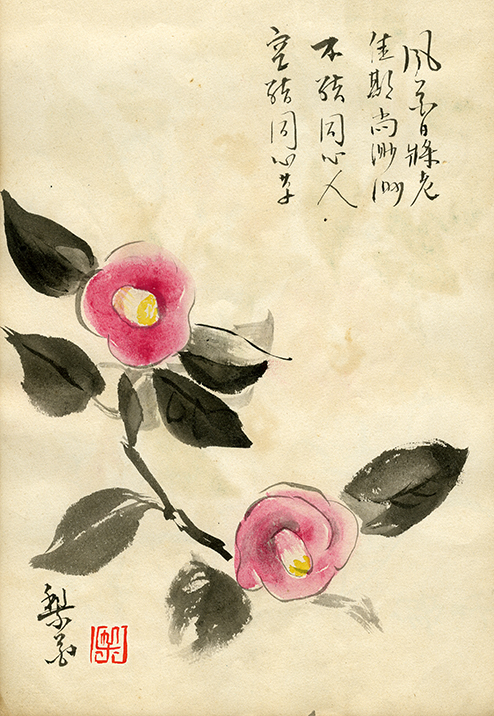 風花日將老
佳期尚渺渺
不結同心人
空結同心草
梨花